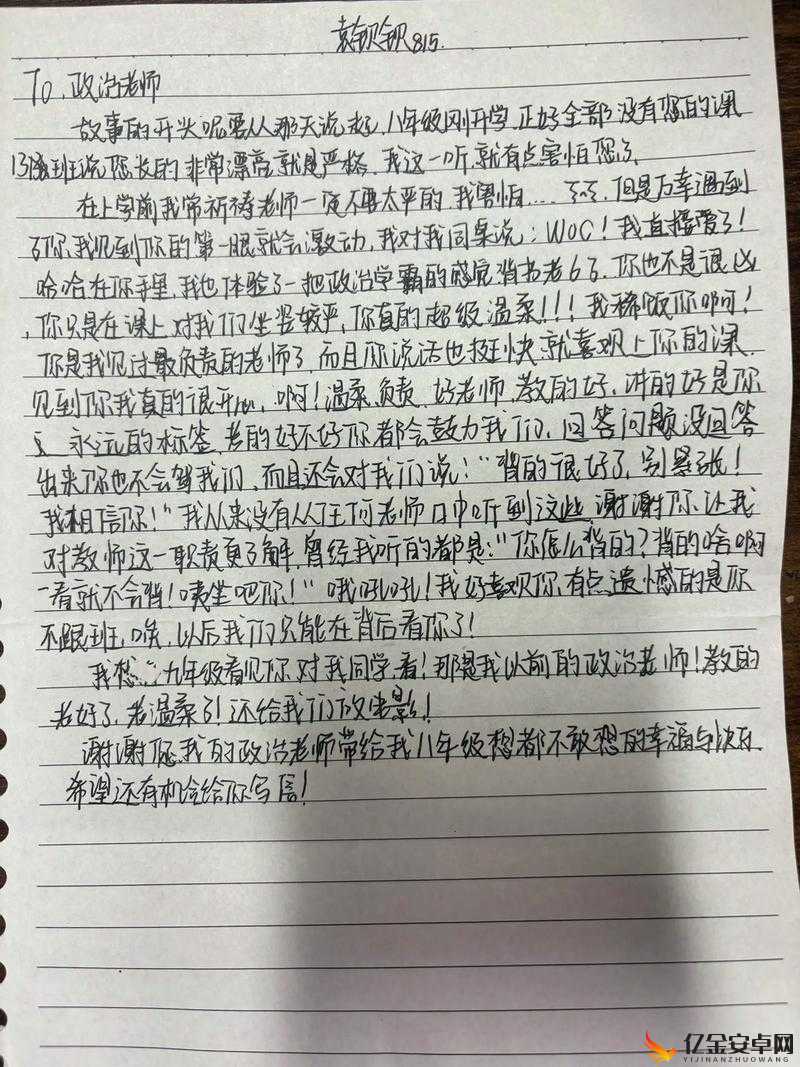 袁钡钡815.
To.政治老师
故事的开头呢要从那天说起,八年级刚开学,正好全部没有您的课
13班说您长的非常漂亮就是严格,我这一听就有点害怕您了,
在上学前我常祈祷老师一定不要太平的,我害怕....但是万幸遇到
了你,我见到你的第一眼就会激动,我对我同桌说:WOC!我直接爱了!
哈哈在你手里,我也体验了一把政治学霸的感觉背书老6了,你也不是很凶
,你只是在课上对我们坐姿较严,你真的超级温柔!!!我稀饭你啊!
你是我见过最负责的老师了,而且你说话也挺快就喜欢上你的课.
见到你我真的很开心,啊!温柔.负责.好老师.教的好.讲的好是你
永远的标签,考的好不好你都会鼓力我们,回答问题没回答
出来你也不会骂我们,而且还会对我们说:"背的很好了,别紧张!
我相信你!"我从来没有从任何老师口中听到这些.谢谢你.让我
对教师这一职责更了解,曾经我听的都是:"你怎么背的?背的啥啊
一看就不会背!咦坐吧你!"哦吼吼!我好喜欢你,有点遗憾的是你
不跟班,唉,以后我们只能在背后看你了!
我想:九年级看见你对我同学,看!那是我以前的政治老师!教的
老好了,老温柔了!还给我们放电影!
谢谢您.我的政治老师带给我八年级想都不敢想的幸福与快乐,
希望还有机会给你写信!
亿金安卓网
YIJINANZHUOWANG